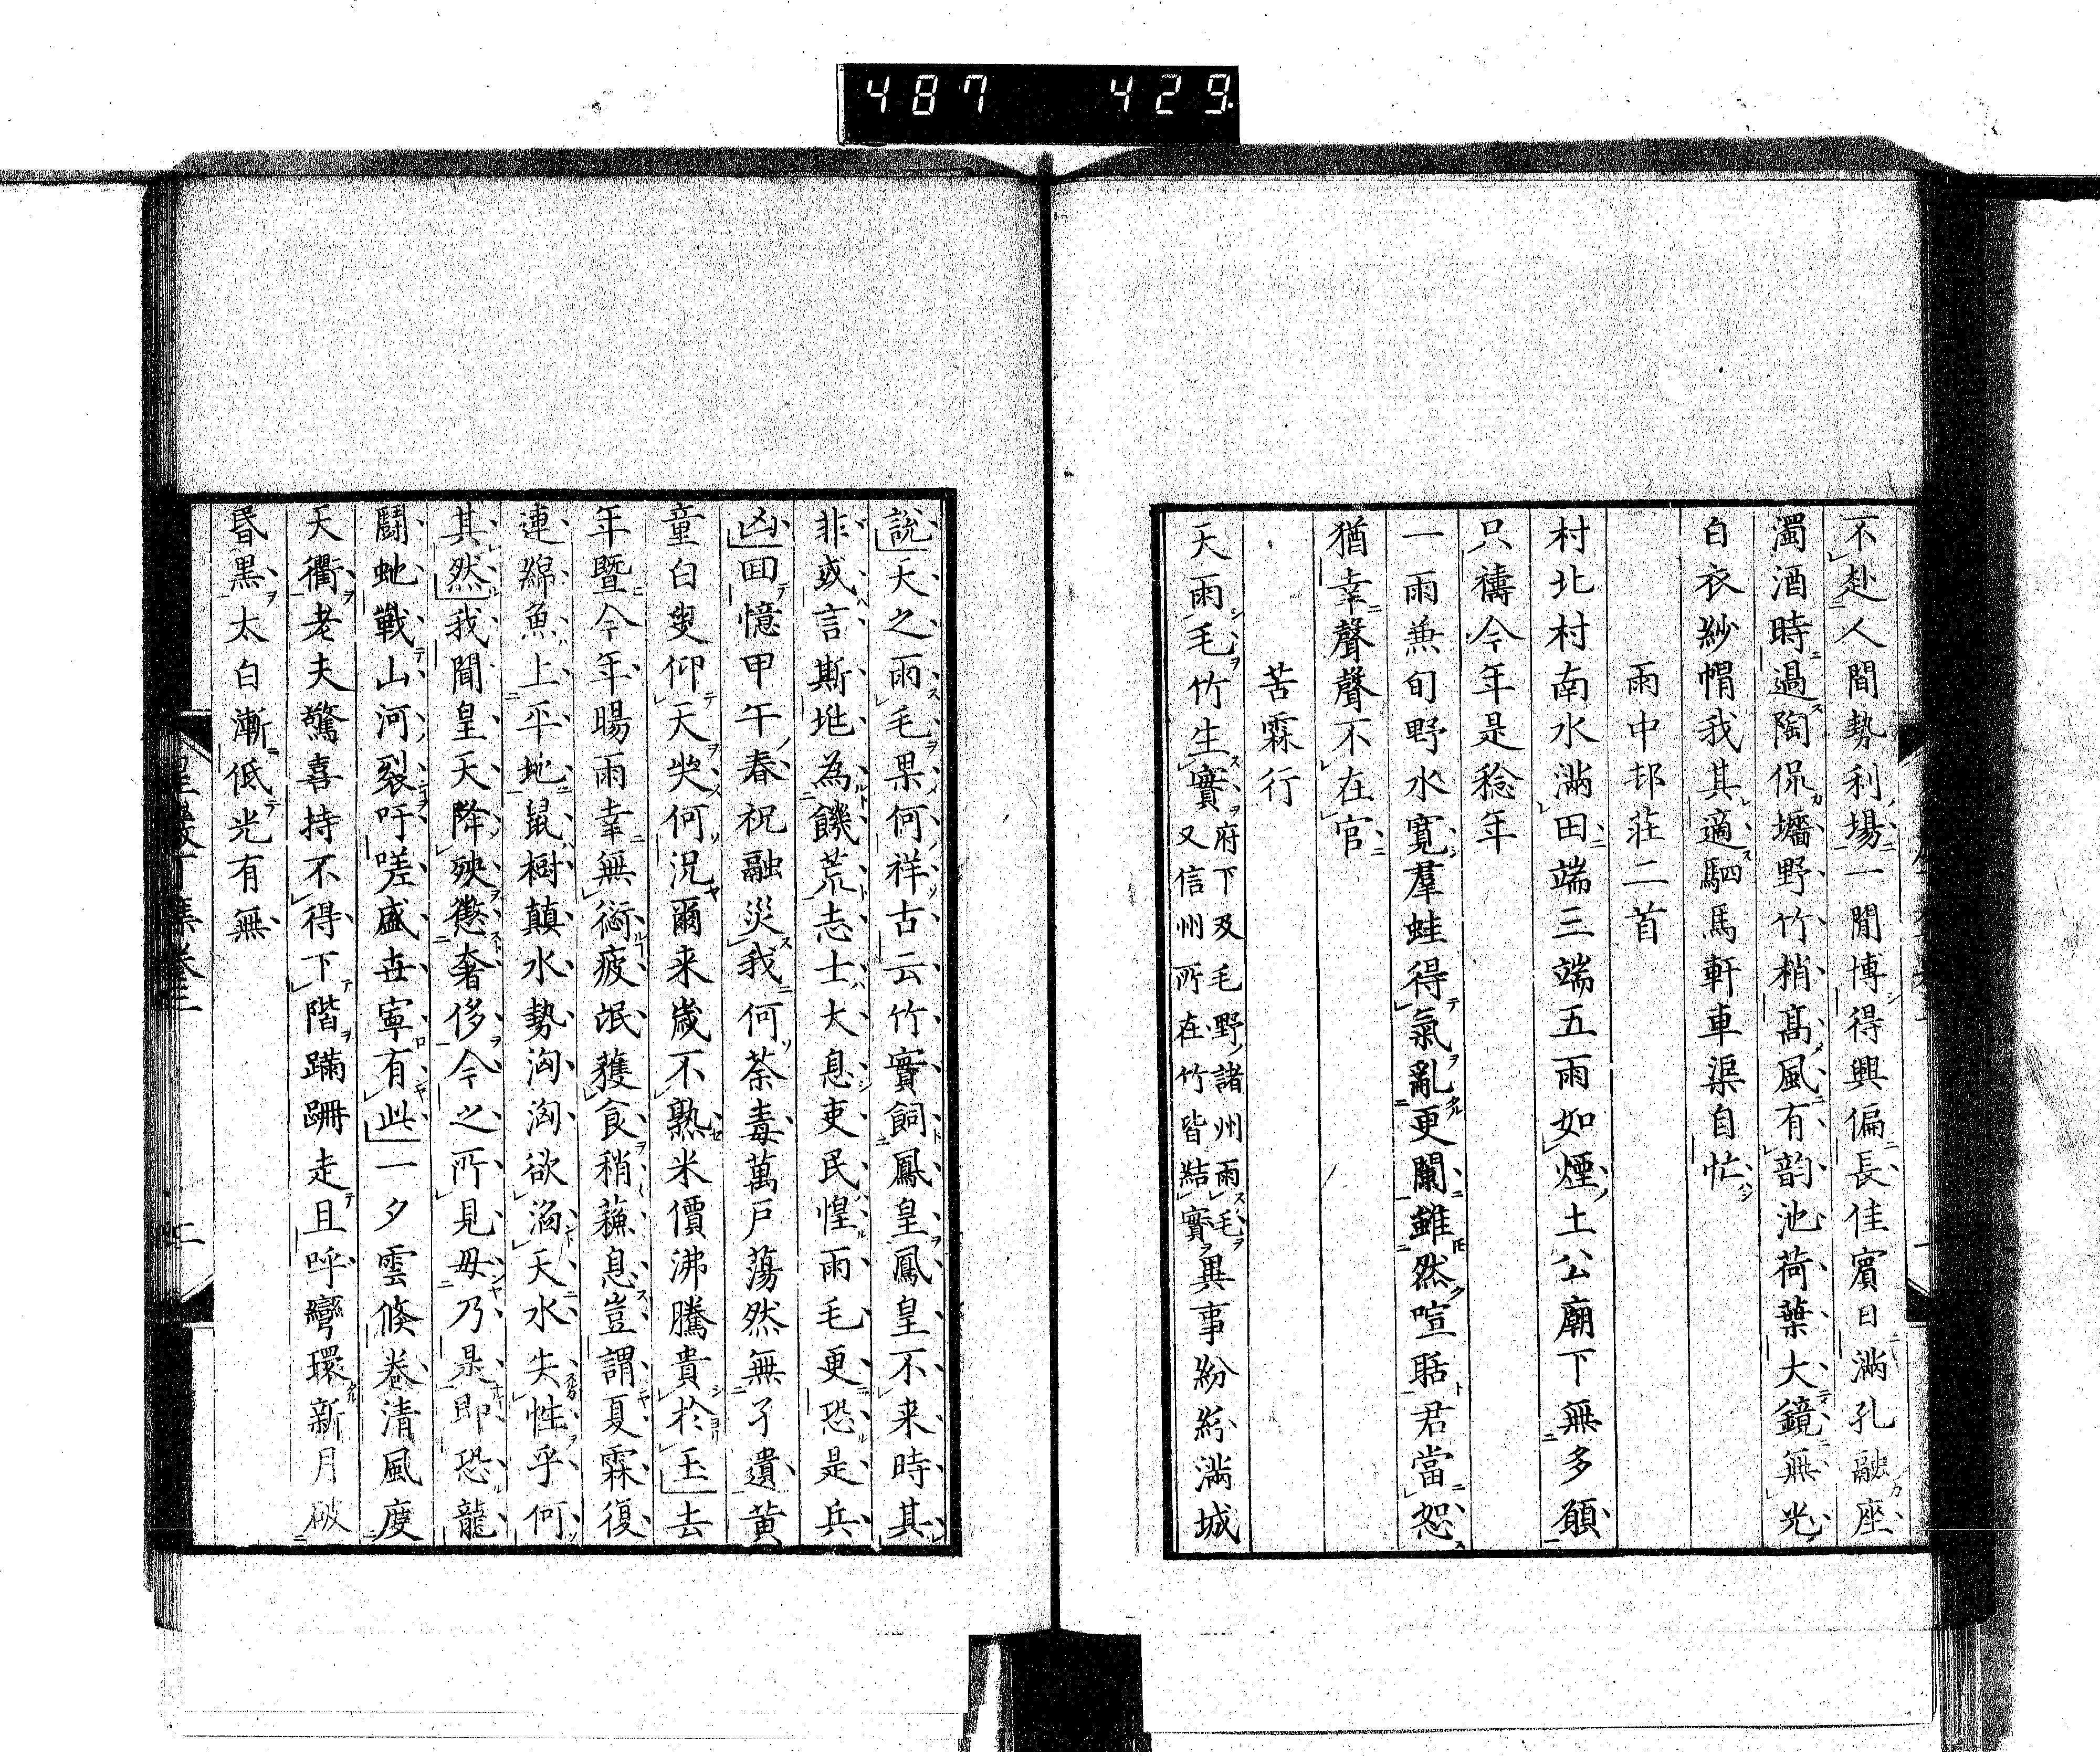 487 429
不赴人間勢利場一閒博得興偏長佳賓日滿孔融座
濁酒時過陶侃壚野竹梢高風有韵池荷葉大鏡無光
白衣紗帽我其適駟馬軒車渠自忙
雨中邨莊二首
村北村南水滿田端三端五雨如煙土公廟下無多願
只禱今年是稔年
一雨兼旬野水寬羣蛙得氣亂更闌雖然喧聒君當恕
猶幸聲聲不在官
苦霖行
天雨毛竹生實府下及毛野諸州雨毛又信州所在竹皆結實異事紛紛滿城
說天之雨毛果何祥古云竹實飼鳳皇鳳皇不来時其
非或言斯地為饑荒志士大息吏民惶雨毛更恐是兵
凶回憶甲午春祝融災我何荼毒萬戶蕩然無孑遺黄
童白叟仰天哭何況爾来歲不熟米價沸騰貴於玉去
年暨今年暘雨幸無愆疲氓獲食稍蘓息豈謂夏霖復
連綿魚上平地鼠樹顛水勢洶洶欲滔天水失性乎何
其然我聞皇天降殃懲奢侈今之所見毋乃是即恐龍
鬪虵戰山河裂吁嗟盛世寧有此一夕雲倐卷清風度
天衢老夫驚喜持不得下階蹣跚走且呼彎環新月破
昏黒太白漸低光有無